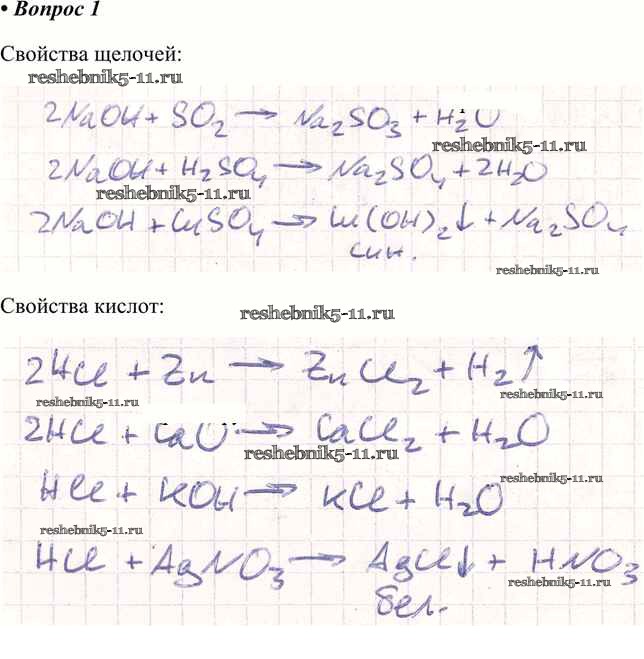 • Вопрос 1
Свойства щелочей:
reshebnik5-11.ru
2NaOH + SO₂ → Na₂SO₃ + H₂O
reshebnik5-11.ru
2NaOH + H₂SO₄ → Na₂SO₄ + 2H₂O
reshebnik5-11.ru
2NaOH + CuSO₄ → Cu(OH)₂↓ + Na₂SO₄
син.
reshebnik5-11.ru
Свойства кислот:
reshebnik5-11.ru
2HCl + Zn → ZnCl₂ + H₂↑
reshebnik5-11.ru
reshebnik5-11.ru
2HCl + CaO → CaCl₂ + H₂O
reshebnik5-11.ru
HCl + KOH → KCl + H₂O
reshebnik5-11.ru
reshebnik5-11.ru
HCl + AgNO₃ → AgCl↓ + HNO₃
reshebnik5-11.ru
бел.